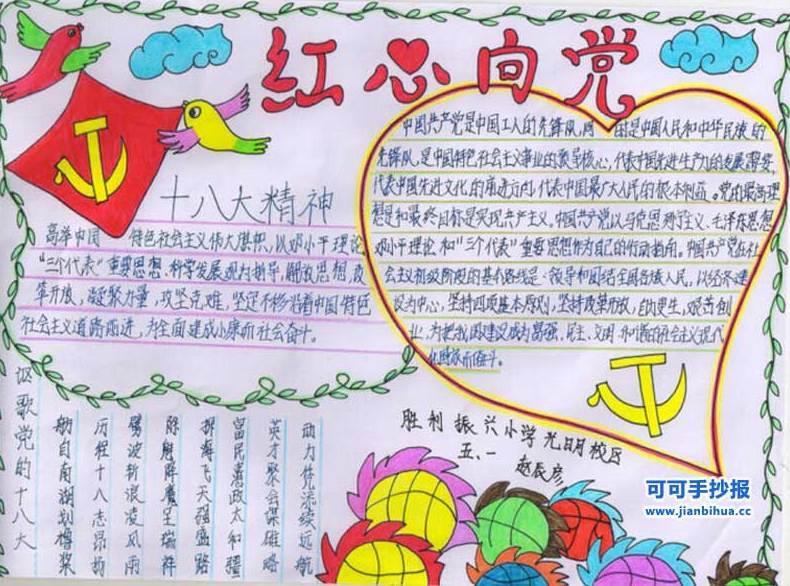 红心向党
十八大精神
高举中国 特色社会主义伟大旗帜，以邓小平理论
“三个代表”重要思想、科学发展观为指导，解放思想，改
革开放，凝聚力量，攻坚克难，坚定不移沿着中国特色
社会主义道路前进，为全面建成小康而社会奋斗。
中国共产党是中国工人的先锋队，同 的是中国人民和中华民族的
先锋队，是中国特色社会主义事业的领导核心，代表中国先进生产力的发展需要，
代表中国先进文化的前进方向，代表中国最广大人民的根本利益。党的最高理
想是和最终目标是实现共产主义，中国共产党以马克思列宁主义、毛泽东思想
邓小平理论和“三个代表”重要思想作为自己的行动指南。中国共产党在社
会主义初级阶段的基本路线是：领导和团结全国各族人民，以经济建
设为中心，坚持四项基本原则，坚持改革开放，自力更生，艰苦创
业，为把我国建设成为富强、民主、文明 和谐的社会主义现代
化国家而奋斗。
讴歌党的十八大
船自南湖划橹桨
历程十八志昂扬
劈波斩浪凌风雨
除魔降魔呈瑞祥
探海飞天强盛路
富民惠政太和疆
英才聚会谋雄略
动力凭流续远航
胜利振兴小学光明校区
五、一 赵辰彦
可可手抄报
www.jianbihua.cc